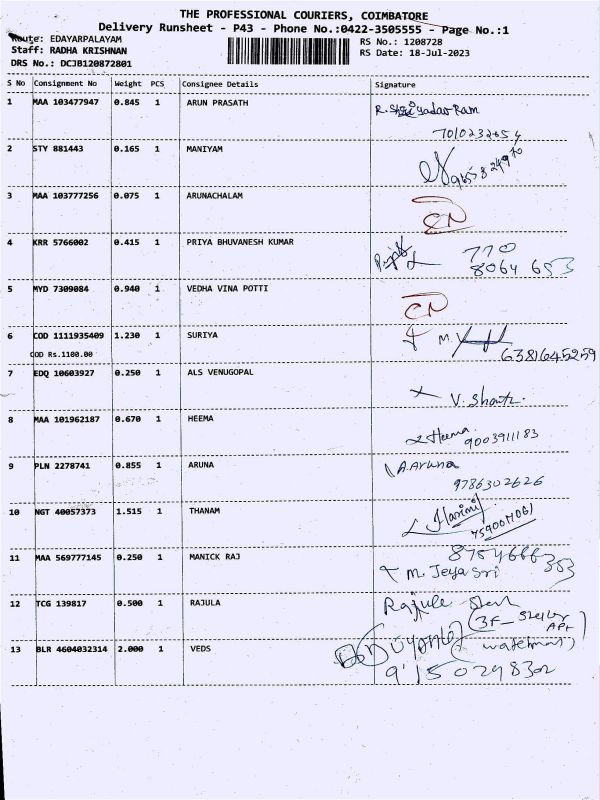 THE PROFESSIONAL COURIERS, COIMBATORE
Delivery Runsheet - P43 - Phone No.:0422-3505555 - Page No.:1
Route: EDAYARPALAYAM
RS No.: 1208728
Staff: RADHA KRISHNAN
RS Date: 18-Jul-2023
DRS No.: DCJB120872801
S No Consignment No Weight PCS Consignee Details Signature
1 MAA 103477947 0.845 1 ARUN PRASATH
7010232654
2 STY 881443 0.165 1 MANIYAM
3 MAA 103777256 0.075 1 ARUNACHALAM
4 KRR 5766002 0.415 1 PRIYA BHUVANESH KUMAR
770
8064 653
5 MYD 7309084 0.940 1 VEDHA VINA POTTI
6 COD 1111935409 1.230 1 SURIYA
COD Rs.1100.00
6381645259
7 EDQ 10603927 0.250 1 ALS VENUGOPAL
8 MAA 101962187 0.670 1 HEEMA
Heema
9003911183
9 PLN 2278741 0.855 1 ARUNA A.Aruna
9786302626
10 NGT 40057373 1.515 1 THANAM
11 MAA 569777145 0.250 1 MANICK RAJ
8754666353
M. Jeya Sri
12 TCG 139817 0.500 1 RAJULA
13 BLR 4604032314 2.000 1 VEDS
9150298302